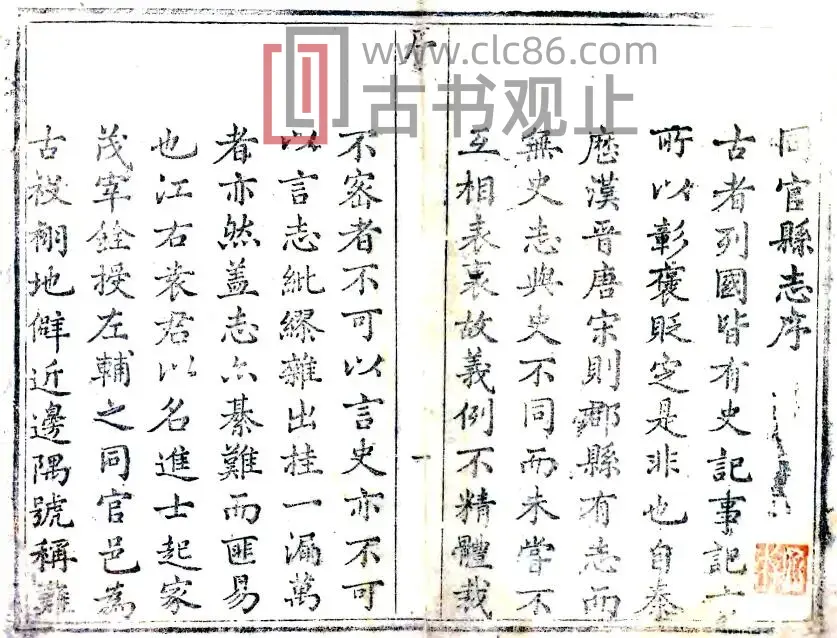 www.clc86.com
古书观止
序
一
同官縣志序
古者列國皆有史記事記
所以彰襃貶定是非也自秦
歷漢晉唐宋則郡縣有志而
無史志與史不同而未嘗不
互相表裏故義例不精體裁
不審者不可以言史亦不可
以言志紕繆雜出挂一漏萬
者亦然盖志亦綦難而匪易
也江右袁君以名進士起家
茂宰銓授左輔之同官邑爲
古祋栩地僻近邊隅號稱難